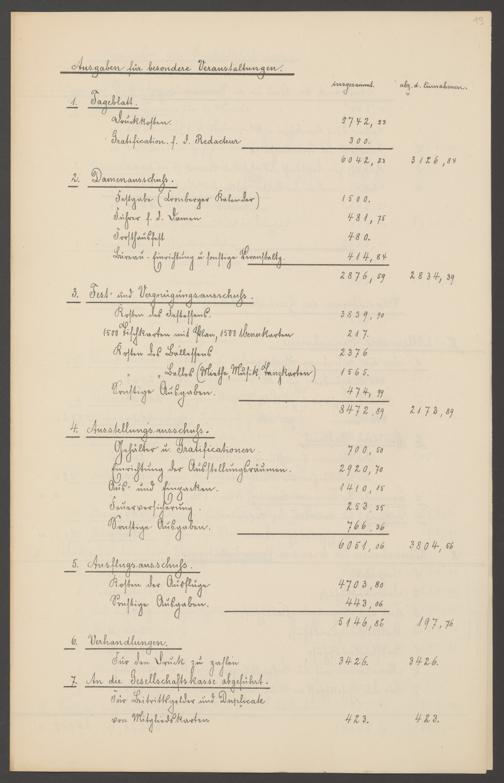 19
Ausgaben für besondere Veranstaltungen.
insgesammt. abz. d. Einnahmen.
1. Tageblatt.
Druckkosten. 5742,83
Gratification f. d. Redacteur 300.
6042,83 3126,84
2. Damenausschuss.
Festgabe (Cronberger Kalender) 1500.
Führer f. d. Damen 481,75
Forsthausfest 480.
Bureau-Einrichtung u sonstige Veranstaltg. 414,84
2876,59 2834,39
3. Fest- und Vergnügungsausschuss.
Kosten des Festessens. 3839,90
1500 Tischkarten mit Plan, 1500 Menukarten 217.
Kosten des Ballessens 2376
" " Balles (Miethe, Musik, Tanzkarten) 1565.
Sonstige Ausgaben. 474,99
8472,89 2173,89
4. Ausstellungsausschuss.
Gehälter u. Gratificationen. 700,50
Einrichtung der Ausstellungsräumen. 2920,70
Aus- und Einpacken. 1410,15
Feuerversicherung. 253,35
Sonstige Ausgaben. 766,36
6051,06 3804,56
5. Ausflugsausschuss.
Kosten der Ausflüge 4703,80
Sonstige Ausgaben. 443,06
5146,86 197,76
6. Verhandlungen.
Für den Druck zu zahlen 3426. 3426.
7. An die Gesellschaftskasse abgeführt.
Für Beitrittsgelder und Duplicate
von Mitgliedskarten 423. 423.